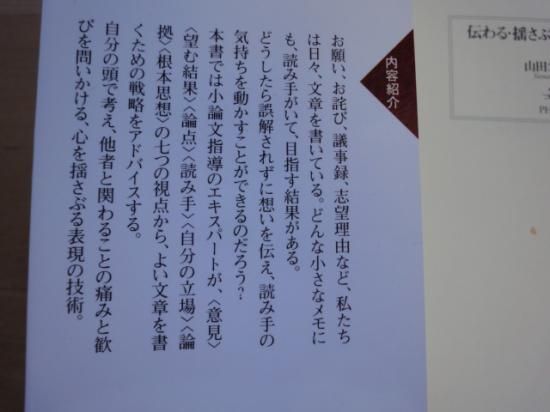 内容紹介
お願い、お詫び、議事録、志望理由など、私たち
は日々、文章を書いている。どんな小さなメモに
も、読み手がいて、目指す結果がある。
どうしたら誤解されずに想いを伝え、読み手の
気持ちを動かすことができるのだろう?
本書では小論文指導のエキスパートが、〈意見〉
〈望む結果〉〈論点〉〈読み手〉〈自分の立場〉〈論
拠〉〈根本思想〉の七つの視点から、よい文章を書
くための戦略をアドバイスする。
自分の頭で考え、他者と関わることの痛みと歓
びを問いかける、心を揺さぶる表現の技術。
伝わる・揺さぶ
山田